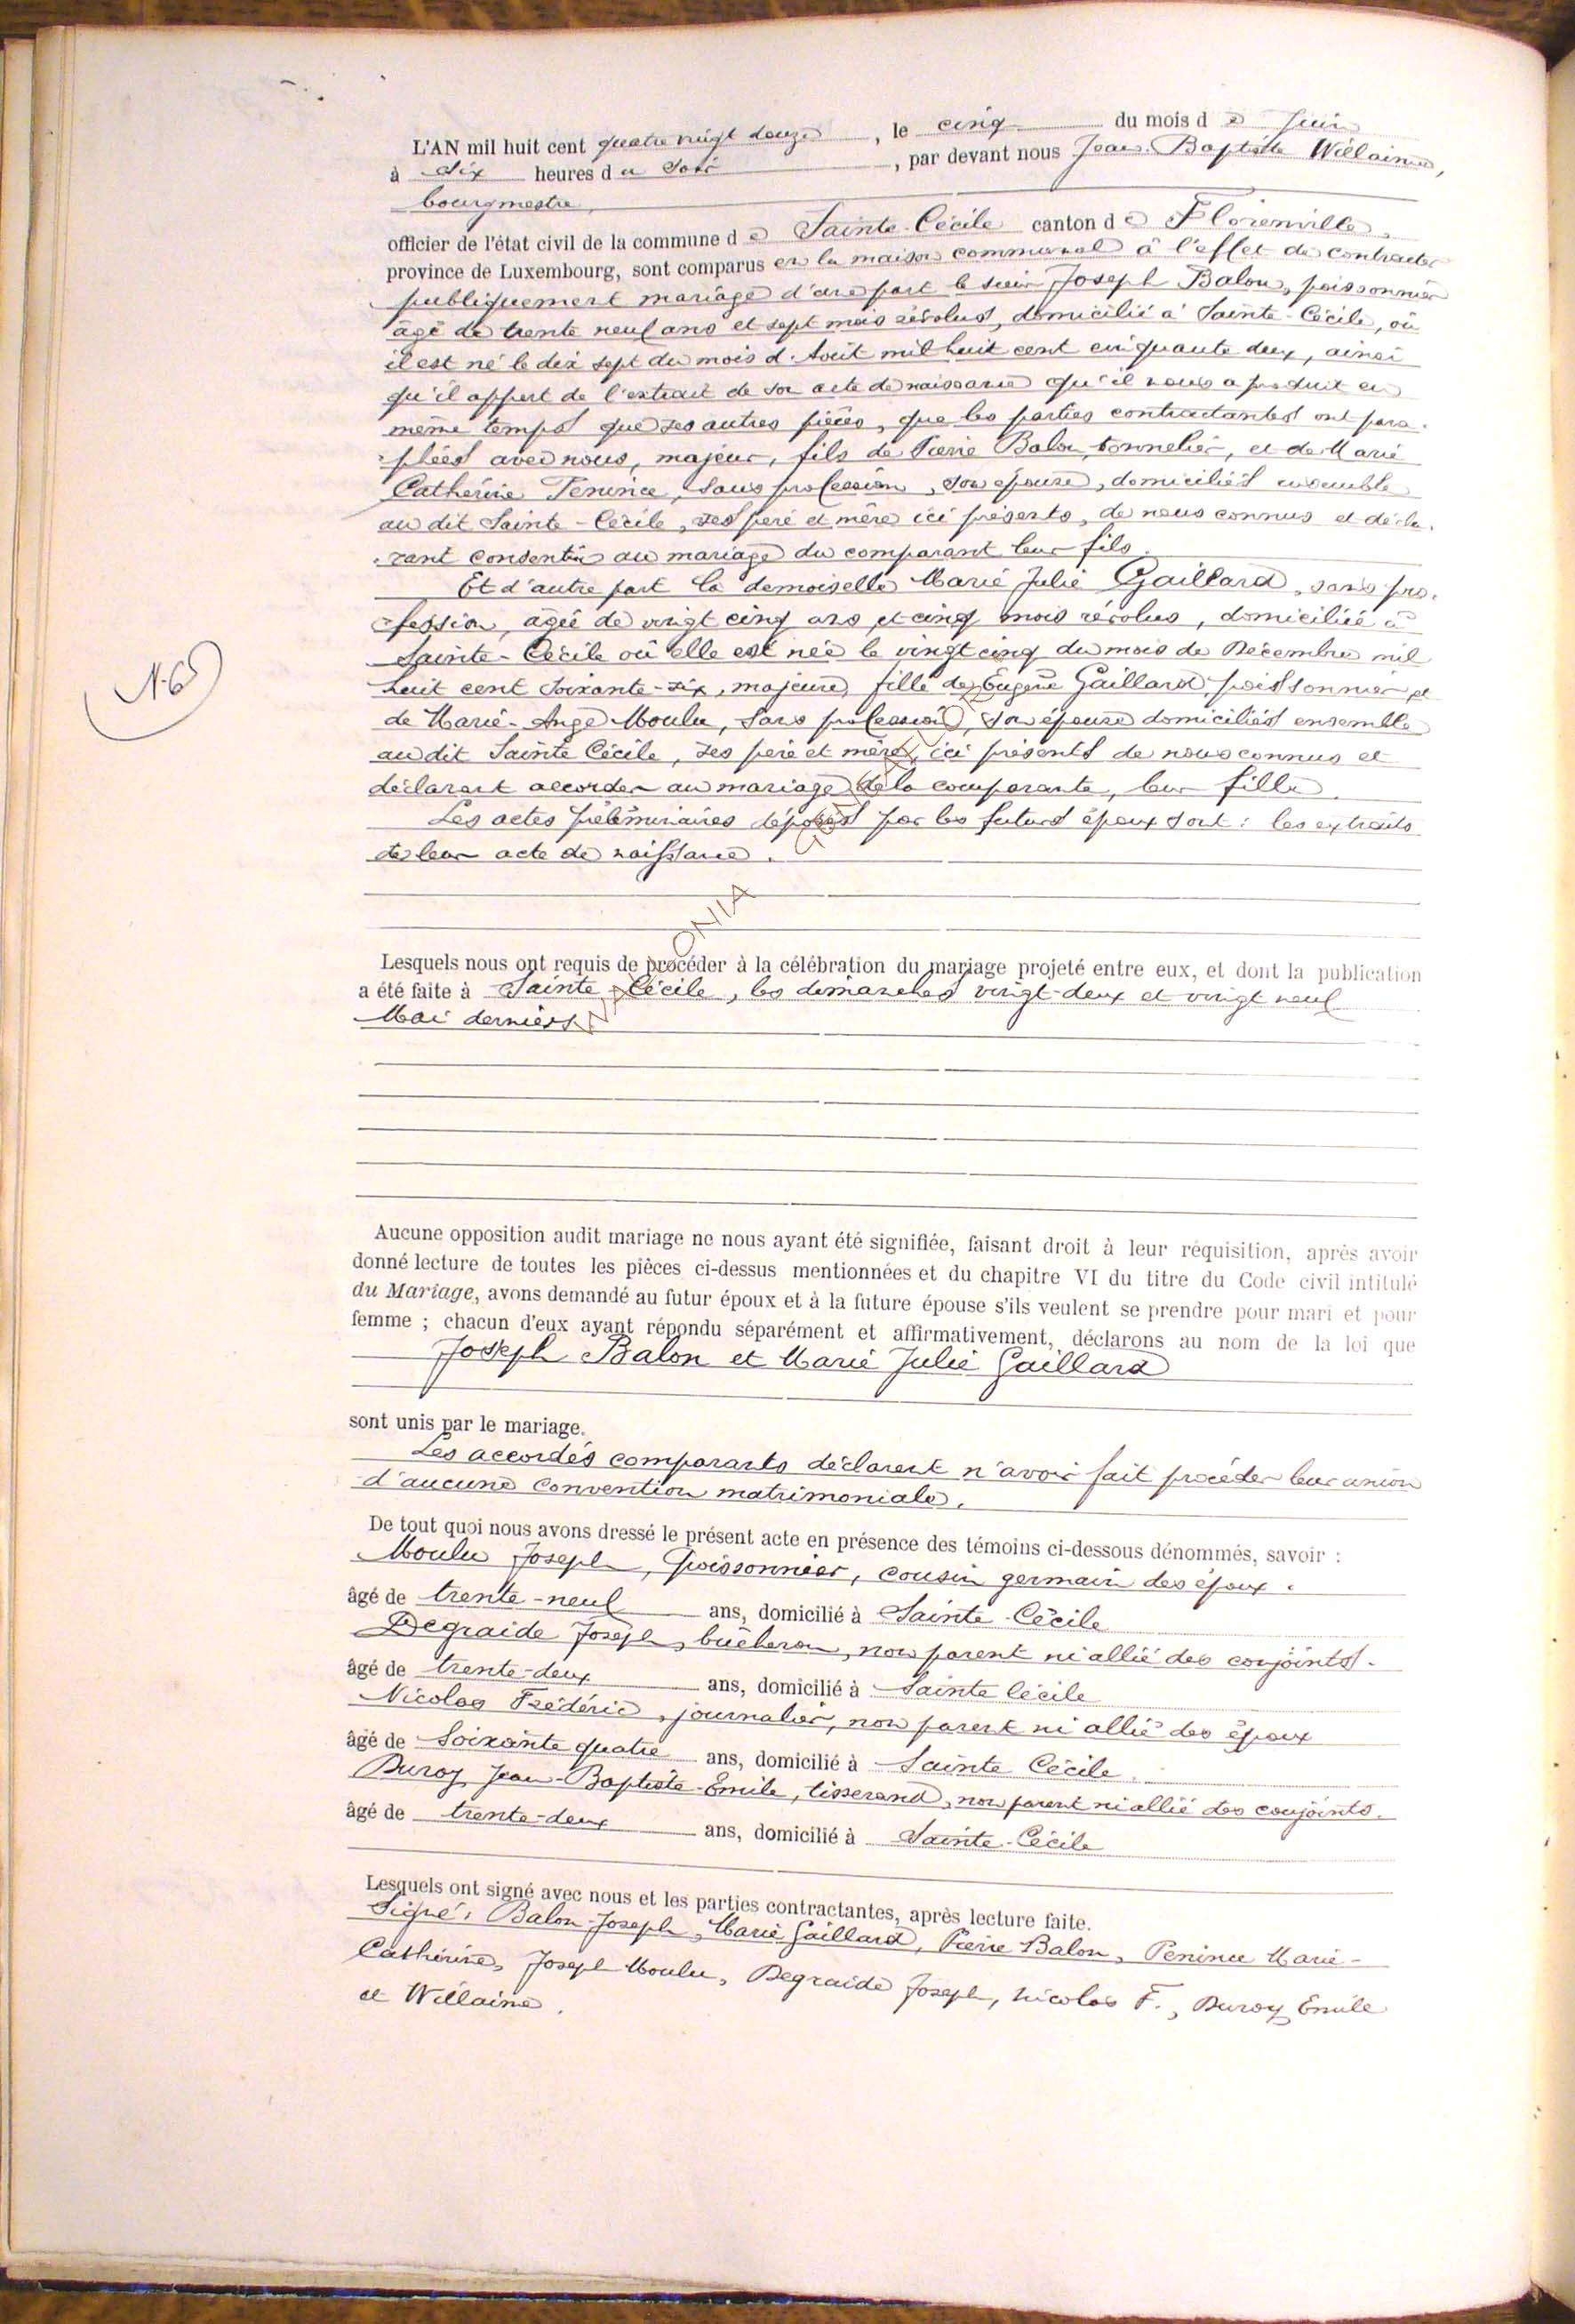 L'AN mil huit cent quatre vingt douze, le cinq du mois de Juin
à six heures du soir, par devant nous Jean-Baptiste Willaime,
bourgmestre,
officier de l'état civil de la commune de Sainte-Cécile canton de Florenville,
province de Luxembourg, sont comparus en la maison communale à l'effet de contracter
publiquement mariage d'une part le sieur Joseph Balon, poissonnier
âgé de trente neuf ans et sept mois révolus, domicilié à Sainte-Cécile, où
il est né le dix sept du mois d'Août mil huit cent cinquante deux, ainsi
qu'il appert de l'extrait de son acte de naissance qu'il nous a produit en
même temps que ses autres pièces, que les parties contractantes ont para-
phées avec nous, majeur, fils de Pierre Balon, tonnelier, et de Marie
Catherine Penince, sans profession, son épouse, domiciliés ensemble
au dit Sainte-Cécile, ses père et mère ici présents, de nous connus et décla-
rant consentir au mariage du comparant leur fils.
Et d'autre part la demoiselle Marie Julie Gaillard, sans pro-
fession, âgée de vingt cinq ans et cinq mois révolus, domiciliée à
N. 6
Sainte-Cécile où elle est née le vingt cinq du mois de Décembre mil
huit cent soixante-six, majeure, fille de Eugène Gaillard, poissonnier et
de Marie-Ange Moulu, sans profession, son épouse domiciliés ensemble
au dit Sainte Cécile, ses père et mère, ici présents de nous connus et
déclarant accorder au mariage de la comparante, leur fille.
Les actes préliminaires déposés par les futurs époux sont : les extraits
de leur acte de naissance.
Lesquels nous ont requis de procéder à la célébration du mariage projeté entre eux, et dont la publication
a été faite à Sainte-Cécile, les dimanches vingt-deux et vingt neuf
Mai derniers.
Aucune opposition audit mariage ne nous ayant été signifiée, faisant droit à leur réquisition, après avoir
donné lecture de toutes les pièces ci-dessus mentionnées et du chapitre VI du titre du Code civil intitulé
du Mariage, avons demandé au futur époux et à la future épouse s'ils veulent se prendre pour mari et pour
femme ; chacun d'eux ayant répondu séparément et affirmativement, déclarons au nom de la loi que
Joseph Balon et Marie Julie Gaillard
sont unis par le mariage.
Les accordés comparants déclarent n'avoir fait précéder leur union
d'aucune convention matrimoniale.
De tout quoi nous avons dressé le présent acte en présence des témoins ci-dessous dénommés, savoir :
Moulu Joseph, poissonnier, cousin germain des époux.
âgé de trente-neuf ans, domicilié à Sainte-Cécile
Degraide Joseph, bûcheron, non parent ni allié des conjoints.
âgé de trente-deux ans, domicilié à Sainte Cécile
Nicolas Frédéric, journalier, non parent ni allié des époux
âgé de Soixante quatre ans, domicilié à Sainte Cécile.
Duroy Jean-Baptiste-Emile, tisserand, non parent ni allié des conjoints.
âgé de trente-deux ans, domicilié à Sainte-Cécile
Lesquels ont signé avec nous et les parties contractantes, après lecture faite.
Signé : Balon Joseph, Marie Gaillard, Pierre Balon, Penince Marie-
Catherine, Joseph Moulu, Degraide Joseph, Nicolas F., Duroy Emile
et Willaime.